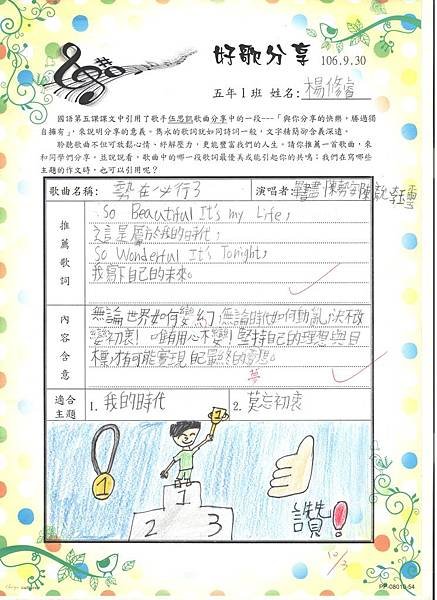 好歌分享 106.9.30
五年1班 姓名:楊修睿
國語第五課課文中引用了歌手伍思凱歌曲分享中的一段---「與你分享的快樂,勝過獨
自擁有」,來說明分享的意義。雋永的歌詞就如同詩詞一般,文字精簡卻含義深遠。
聆聽歌曲不但可放鬆心情,紓解壓力,更能豐富我們的人生。請你推薦一首歌曲,來
和同學們分享,並說說看,歌曲中的哪一段歌詞最優美或能引起你的共鳴;我們在寫哪些
主題的作文時,也可以引用呢?
歌曲名稱: 勢在必行3 演唱者:
推薦歌詞
So Beautiful It's my Life,
這是屬於我的時代,
So Wonderful It's Tonight,
我寫下自己的未來。
內容含意
無論世界如何變幻,無論時代如何動亂,決不改
變初衷!唯有用心不變!堅持自己的理想與目
標,才有可能實現自己最終的夢想。
夢
適合主題 1. 我的時代 2. 莫忘初衷
1
1
2 3
讚!
10/3
PP-08010-54